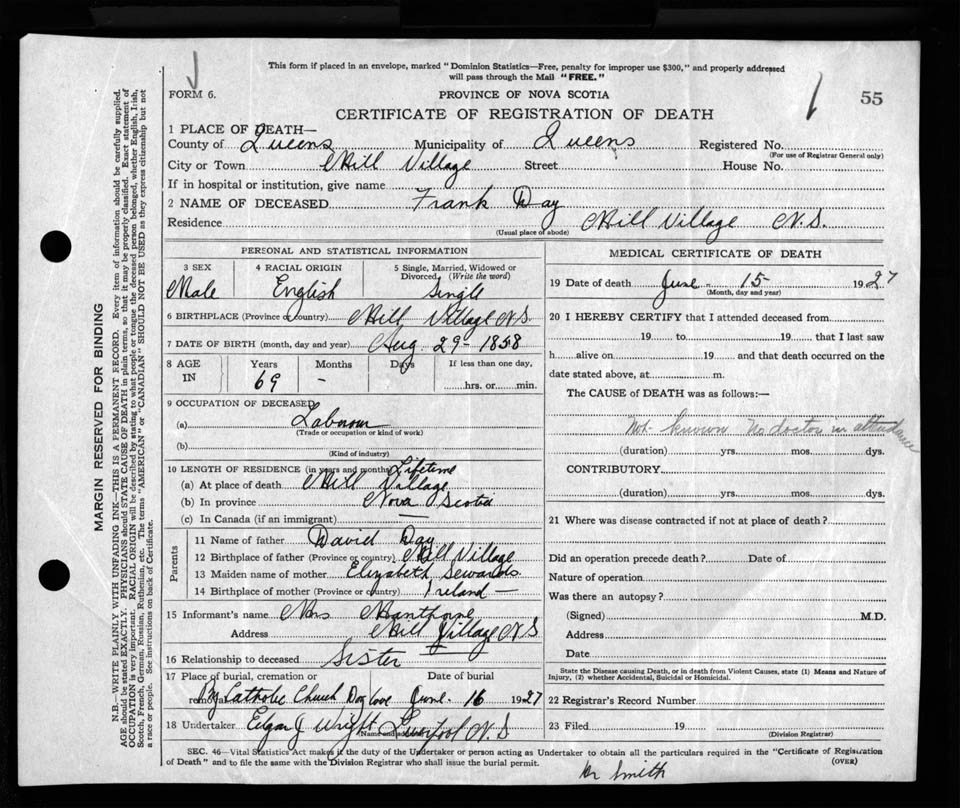 This form if placed in an envelope, marked "Dominion Statistics—Free, penalty for improper use $300," and properly addressed
will pass through the Mail "FREE."
FORM 6.
PROVINCE OF NOVA SCOTIA
55
CERTIFICATE OF REGISTRATION OF DEATH
1 PLACE OF DEATH—
County of Queens Municipality of Queens Registered No.
(For use of Registrar General only)
City or Town Mill Village Street House No.
If in hospital or institution, give name
2 NAME OF DECEASED Frank Day
Residence Mill Village N.S.
(Usual place of abode)
PERSONAL AND STATISTICAL INFORMATION
3 SEX 4 RACIAL ORIGIN 5 Single, Married, Widowed or
Divorced (Write the word)
Male English Single
6 BIRTHPLACE (Province or country) Mill Village N.S.
7 DATE OF BIRTH (month, day and year) Aug 29- 1858
8 AGE IN Years Months Days If less than one day,
69 - hrs. or min.
9 OCCUPATION OF DECEASED
(a) Labourer
(Trade or occupation or kind of work)
(b)
(Kind of industry)
10 LENGTH OF RESIDENCE (in years and months) Lifetime
(a) At place of death Mill Village
(b) In province Nova Scotia
(c) In Canada (if an immigrant) —
Parents
11 Name of father David Day
12 Birthplace of father (Province or country) Mill Village
13 Maiden name of mother Elizabeth
14 Birthplace of mother (Province or country) Ireland —
15 Informant's name Mrs Manthorne
Address Mill Village N.S
16 Relationship to deceased Sister
17 Place of burial, cremation or removal Date of burial
Catholic Church June. 16 1927
18 Undertaker Edgar J Wright Liverpool N.S
(Name and address)
MEDICAL CERTIFICATE OF DEATH
19 Date of death June - 15 1927
(Month, day and year)
20 I HEREBY CERTIFY that I attended deceased from
19 to 19 that I last saw
h alive on 19 and that death occurred on the
date stated above, at m.
The CAUSE of DEATH was as follows:—
Not known No doctor in attendance
(duration) yrs. mos. dys.
CONTRIBUTORY
(duration) yrs. mos. dys.
21 Where was disease contracted if not at place of death?
Did an operation precede death? Date of
Nature of operation
Was there an autopsy?
(Signed) M.D.
Address
Date
State the Disease causing Death, or in Death from Violent Causes, state (1) Means and Nature of
Injury, (2) whether Accidental, Suicidal or Homicidal.
22 Registrar's Record Number
23 Filed 19
(Division Registrar)
SEC. 46—Vital Statistics Act makes it the duty of the Undertaker or person acting as Undertaker to obtain all the particulars required in the "Certificate of Registration
of Death" and to file the same with the Division Registrar who shall issue the burial permit.
(OVER)
Dr Smith
MARGIN RESERVED FOR BINDING
N.B.—WRITE PLAINLY WITH UNFADING INK—THIS IS A PERMANENT RECORD. Every item of information should be carefully supplied.
AGE should be stated EXACTLY. PHYSICIANS should STATE CAUSE OF DEATH in plain terms, so that it may be properly classified. Exact statement of
OCCUPATION is very important. RACIAL ORIGIN will be described by stating to what people or tongue the deceased person belonged, whether English, Irish,
Scotch, French, German, Russian, Ruthenian, etc. The terms "AMERICAN" or "CANADIAN" SHOULD NOT BE USED as they express citizenship but not
a race or people. See instructions on back of Certificate.